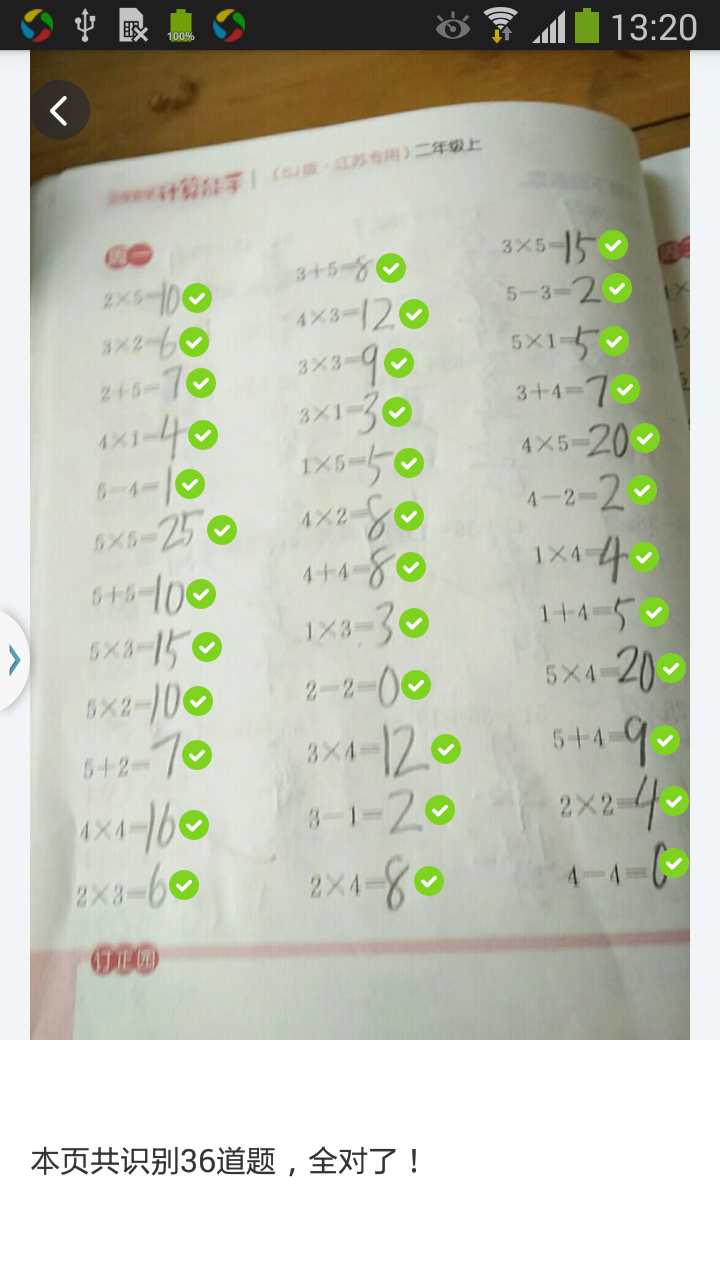 100%
13:20
计算能手 (SJ版·江苏专用) 二年级上
周一
2×5=10
3×2=6
2+5=7
4×1=4
5-4=1
5×5=25
5+5=10
5×3=15
5×2=10
5+2=7
4×4=16
2×3=6
3+5=8
4×3=12
3×3=9
3×1=3
1×5=5
4×2=8
4+4=8
1×3=3
2-2=0
3×4=12
3-1=2
2×4=8
3×5=15
5-3=2
5×1=5
3+4=7
4×5=20
4-2=2
1×4=4
1+4=5
5×4=20
5+4=9
2×2=4
4-4=0
订正园
本页共识别36道题，全对了！